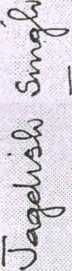 Jagdish Singh